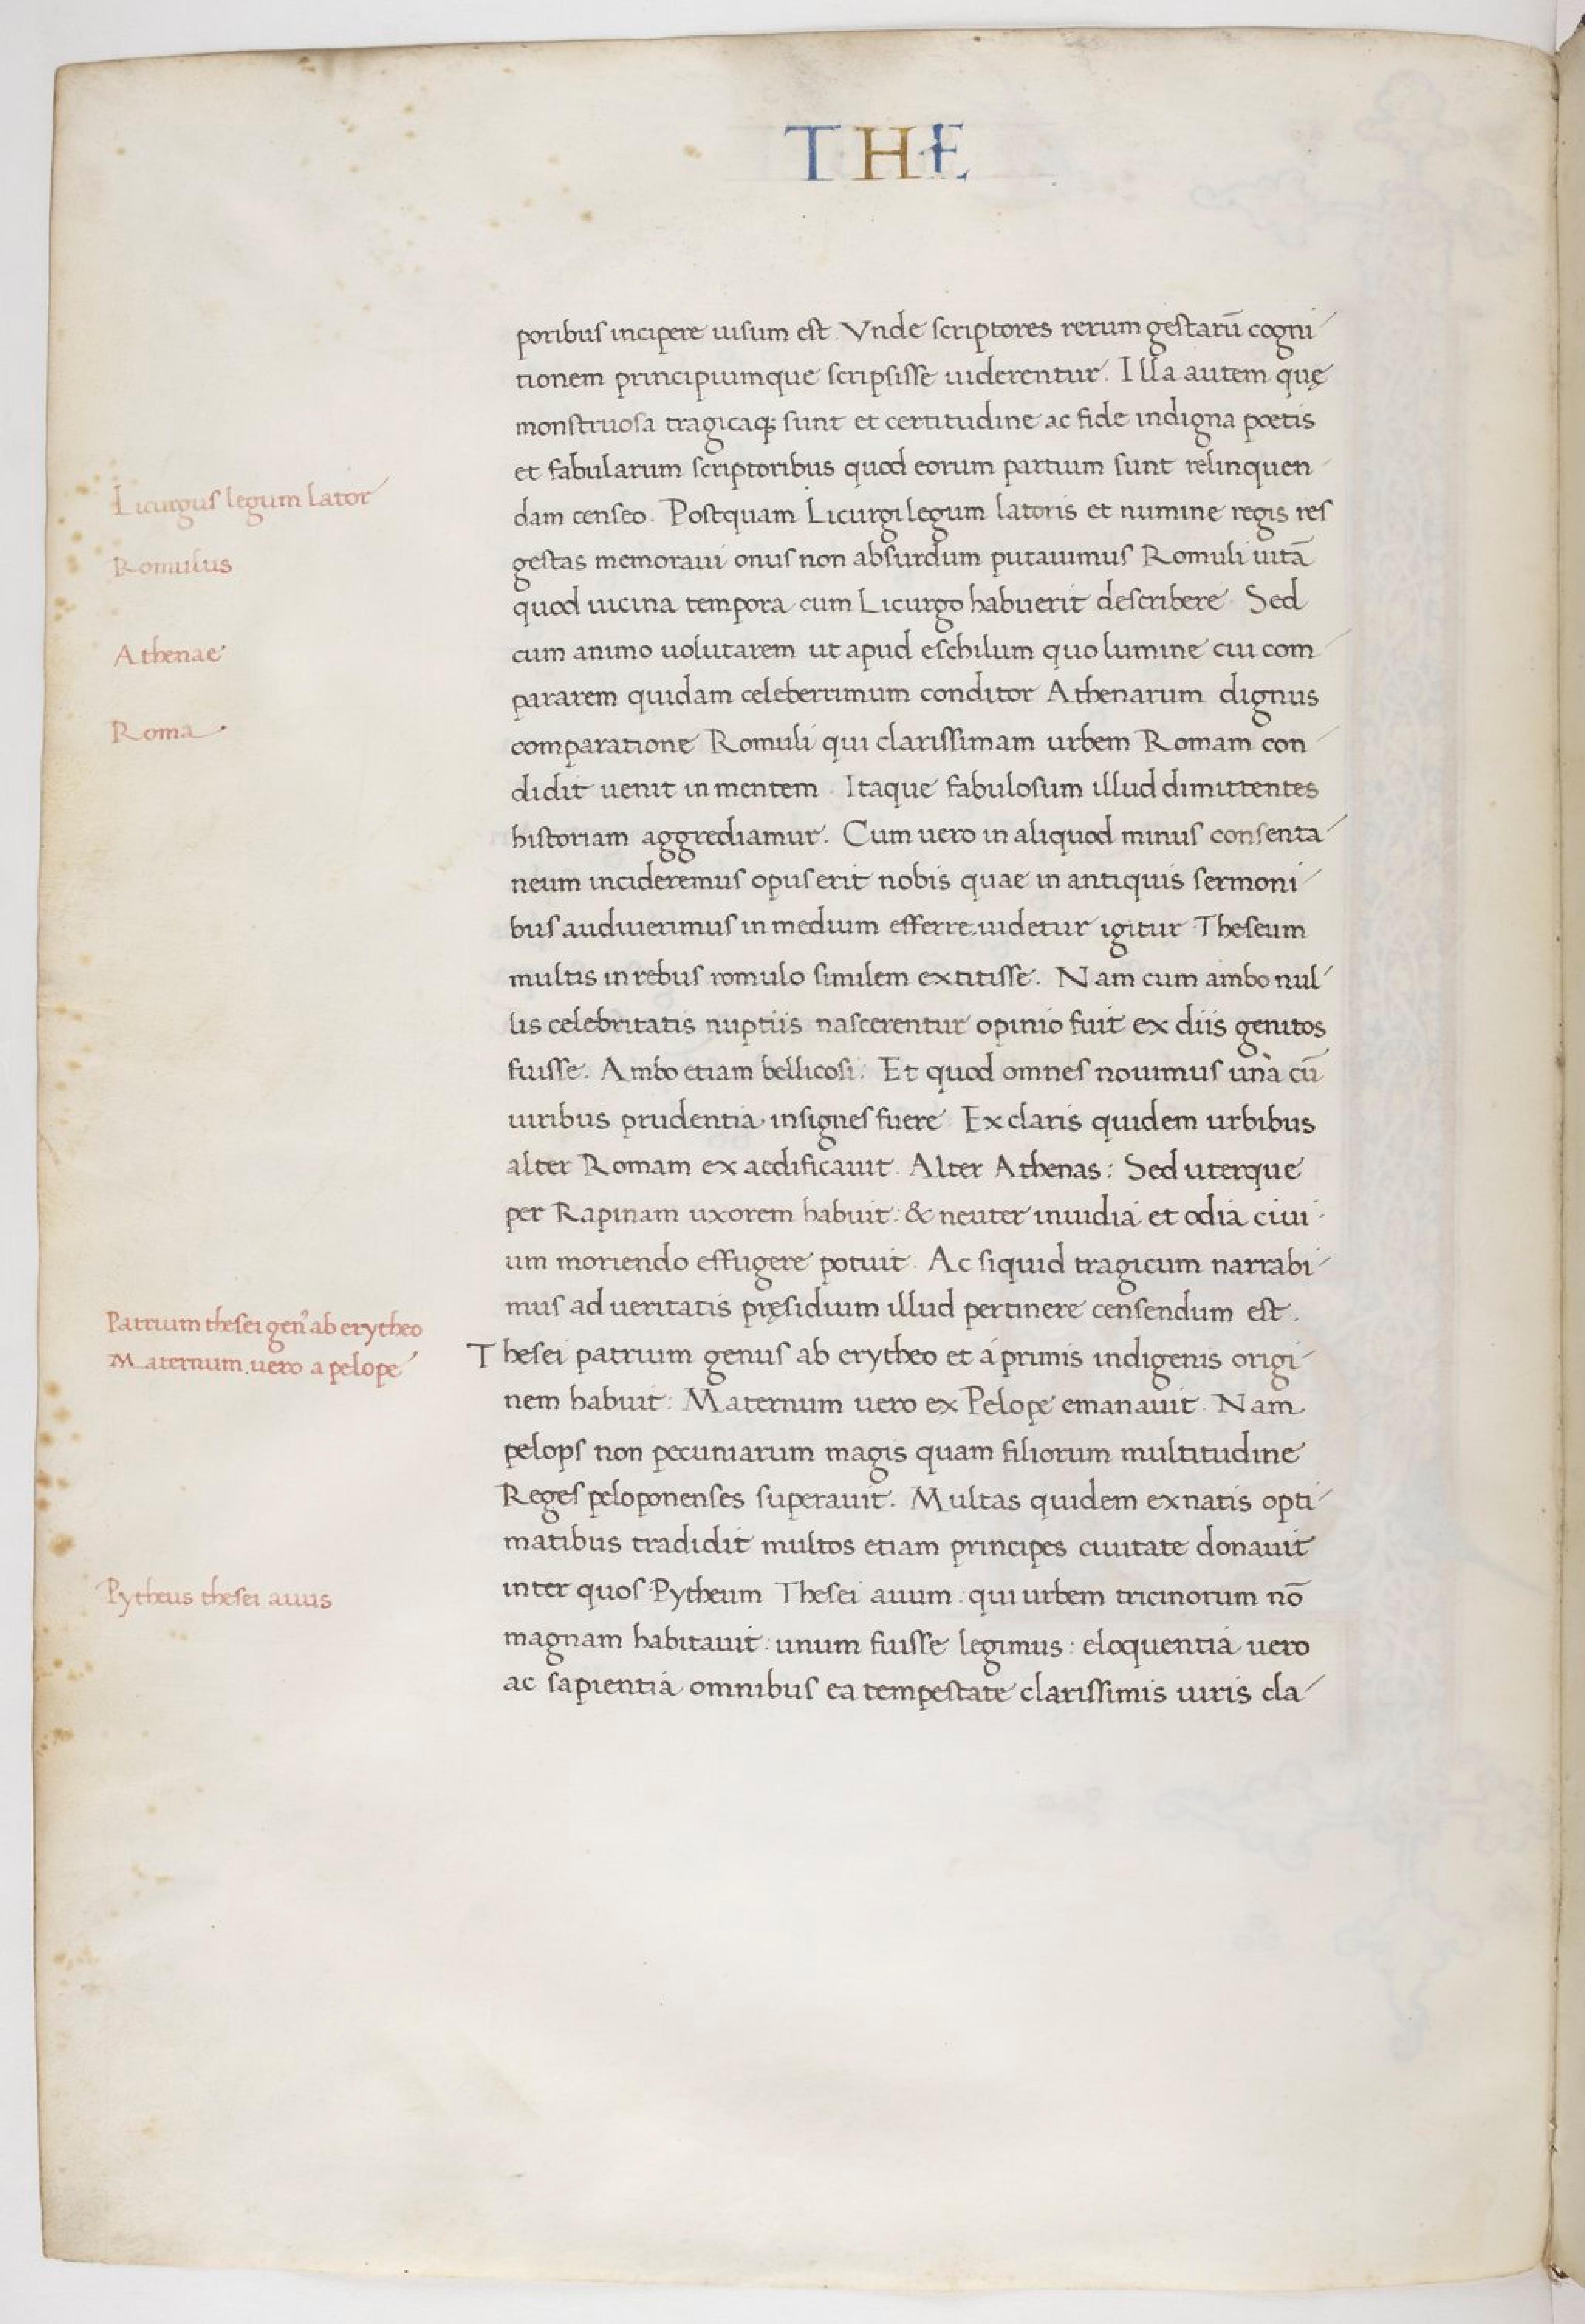 THE
poribus incipere uisum est. Vnde scriptores rerum gestarū cogni
tionem principiumque scripsisse uiderentur. Illa autem quę
monstruosa tragicaq; sunt et certitudine ac fide indigna poetis
et fabularum scriptoribus quod eorum partium sunt relinquen
Licurgus legum lator
dam censeo. Postquam Licurgi legum latoris et numine regis res
Romulus
gestas memoraui onus non absurdum putauimus Romuli uitā
quod uicina tempora cum Licurgo habuerit describere. Sed
Athenae
cum animo uolutarem ut apud eschilum quo lumine cui com
pararem quidam celeberrimum conditor Athenarum dignus
Roma
comparatione Romuli qui clarissimam urbem Romam con
didit uenit in mentem. Itaque fabulosum illud dimittentes
historiam aggrediamur. Cum uero in aliquod minus consenta
neum incideremus opus erit nobis quae in antiquis sermoni
bus audiuerimus in medium efferre. uidetur igitur Theseum
multis in rebus romulo similem extitisse. Nam cum ambo nul
lis celebritatis nuptiis nascerentur opinio fuit ex diis genitos
fuisse. Ambo etiam bellicosi. Et quod omnes nouimus unà cū
uiribus prudentia insignes fuere. Ex claris quidem urbibus
alter Romam ex aedificauit. Alter Athenas: Sed uterque
per Rapinam uxorem habuit: & neuter inuidia et odia ciui
um moriendo effugere potuit. Ac siquid tragicum narrabi
mus ad ueritatis pręsidium illud pertinere censendum est.
Patrium thesei gen' ab erytheo
Maternum uero a pelope
Thesei patrium genus ab erytheo et á primis indigenis origi
nem habuit: Maternum uero ex Pelope emanauit. Nam
pelops non pecuniarum magis quam filiorum multitudine
Reges peloponenses superauit. Multas quidem exnatis opti
matibus tradidit multos etiam principes ciuitate donauit
Pytheus thesei auus
inter quos Pytheum Thesei auum: qui urbem tricinorum nō
magnam habitauit: unum fuisse legimus: eloquentia uero
ac sapientia omnibus ea tempestate clarissimis uiris cla